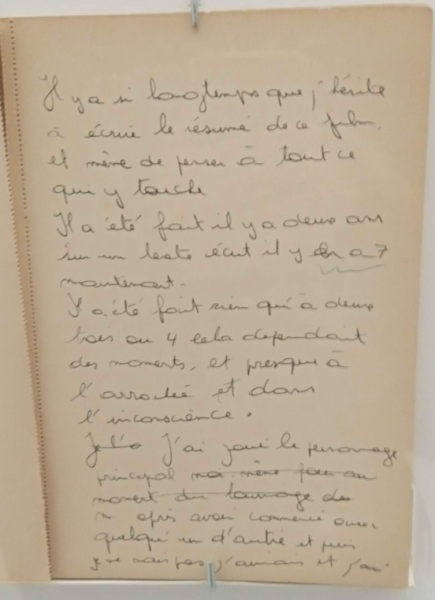 Il y a si longtemps que j'hésite
à écrire le résumé de ce film,
et même de penser à tout ce
qui y touche
Il a été fait il y a deux ans
sur un texte écrit il y en a 7
maintenant.
Il a été fait rien qu'à deux
trois ou 4 cela dépendant
des moments, et presque à
l'arrachée et dans
l'inconscience.
J'ai joué le personnage
principal moi même
moment du tournage
après avoir commencé avec
quelqu'un d'autre et puis
j'aimais et j'ai